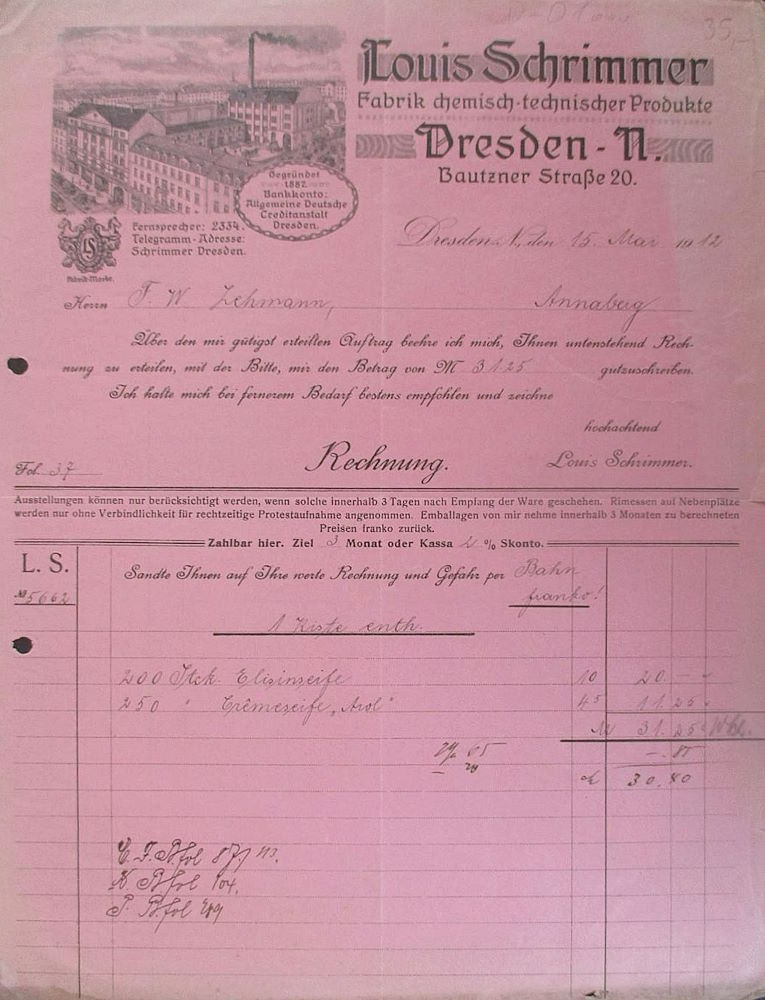 35,-
Louis Schrimmer
Fabrik chemisch-technischer Produkte
Dresden-N.
Bautzner Straße 20.
Gegründet
1882
Bankkonto:
Allgemeine Deutsche
Creditanstalt
Dresden.
Fernsprecher: 2334.
Telegramm-Adresse:
Schrimmer Dresden.
LS
Fabrik-Marke.
Dresden-N., den 15. Mai 1912
Herrn F. W. Zehmann, Annaberg
Über den mir gütigst erteilten Auftrag beehre ich mich, Ihnen untenstehend Rech-
nung zu erteilen, mit der Bitte, mir den Betrag von M 31 25 gutzuschreiben.
Ich halte mich bei fernerem Bedarf bestens empfohlen und zeichne
hochachtend
Fol. 37 Rechnung. Louis Schrimmer.
Ausstellungen können nur berücksichtigt werden, wenn solche innerhalb 3 Tagen nach Empfang der Ware geschehen. Rimessen auf Nebenplätze
werden nur ohne Verbindlichkeit für rechtzeitige Protestaufnahme angenommen. Emballagen von mir nehme innerhalb 3 Monaten zu berechneten
Preisen franko zurück.
Zahlbar hier. Ziel 3 Monat oder Kassa 2 % Skonto.
L. S. Sandte Ihnen auf Ihre werte Rechnung und Gefahr per Bahn
№ 5662 franko!
1 Kiste enth.
200 Stck. Elisinseife 10 20.-
250 " Crêmeseife „Arol" 45 11.25
M 31.25
2% 65
30.40
C. F. B. fol 87/113.
K. B. fol 104.
P. B. fol 209